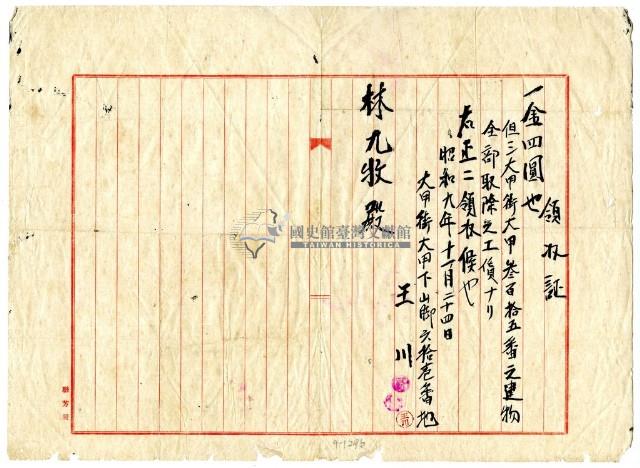 領収証
一金四圓也
但シ大甲街大甲叁百拾五番之建物
全部取除之工賃ナリ
右正ニ領收候也
昭和九年十一月二十四日
大甲街大甲下山脚六拾壱番地
王川
林九牧殿
國史館臺灣文獻館
TAIWAN HISTORICA
9-1296